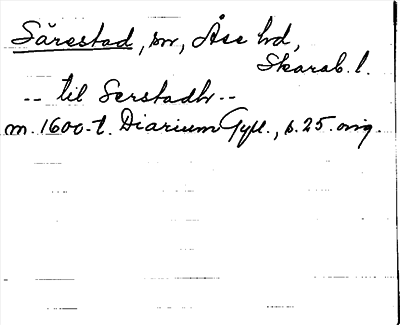 Särestad, sn, Åse hd,
Skarab. l.
-- til Serstadh --
m. 1600-t. Diarium Gyll., s. 25. orig.